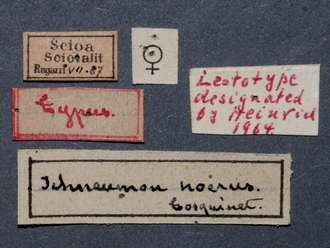 Scioa
Sciotalit
Ragazzi VII.87
♀
Typus.
Lectotype
designated
by Heinrich
1964
Ichneumon noerus.
Tosquinet.